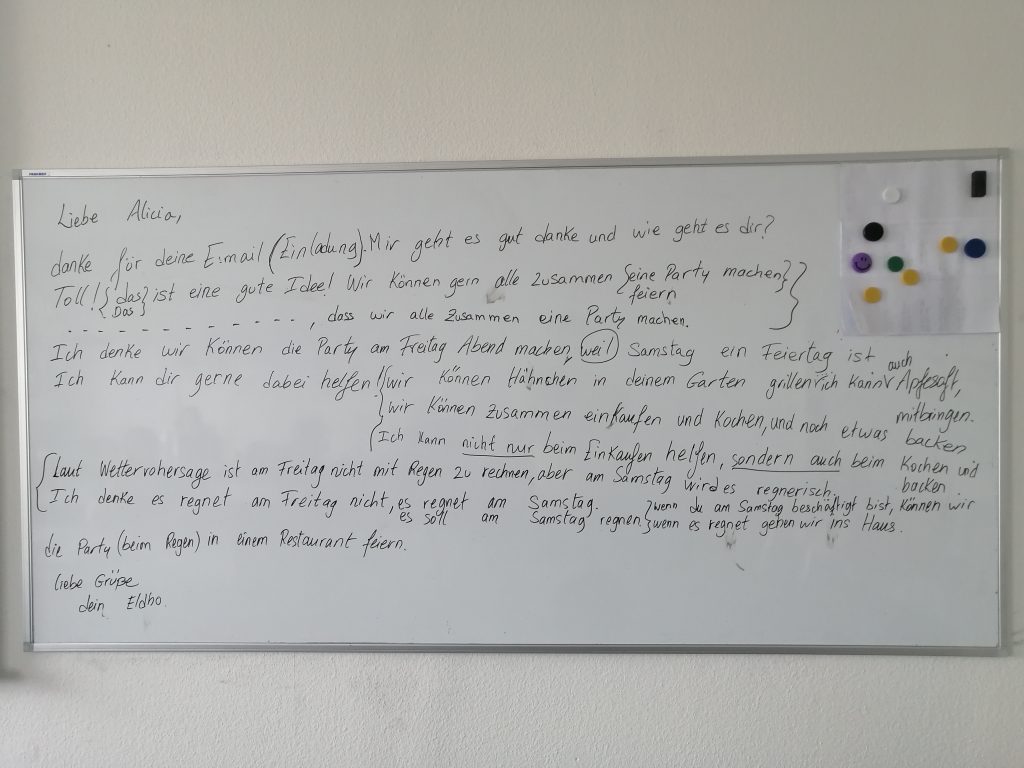 Liebe Alicia,
danke für deine E-mail (Einladung). Mir geht es gut danke und wie geht es dir?
Toll! {das} ist eine gute Idee! Wir Können gern alle zusammen {eine Party machen}
{Das} feiern
- - - - - - - - - - - - - - , dass wir alle zusammen eine Party machen.
Ich denke wir Können die Party am Freitag Abend machen, weil Samstag ein Feiertag ist
Ich Kann dir gerne dabei helfen! wir Können Hähnchen in deinem Garten grillen, ich kann auch Apfesaft,
mitbringen.
wir Können zusammen einkaufen und Kochen, und noch etwas backen
Ich Kann nicht nur beim Einkaufen helfen, sondern auch beim Kochen und
backen.
Laut Wettervohersage ist am Freitag nicht mit Regen zu rechnen, aber am Samstag wird es regnerisch.
Ich denke es regnet am Freitag nicht, es regnet am Samstag. wenn du am Samstag beschäftigt bist, Können wir
es soll am Samstag regnen wenn es regnet gehen wir ins Haus.
die Party (beim Regen) in einem Restaurant feiern.
Liebe Grüße
dein Eldho.